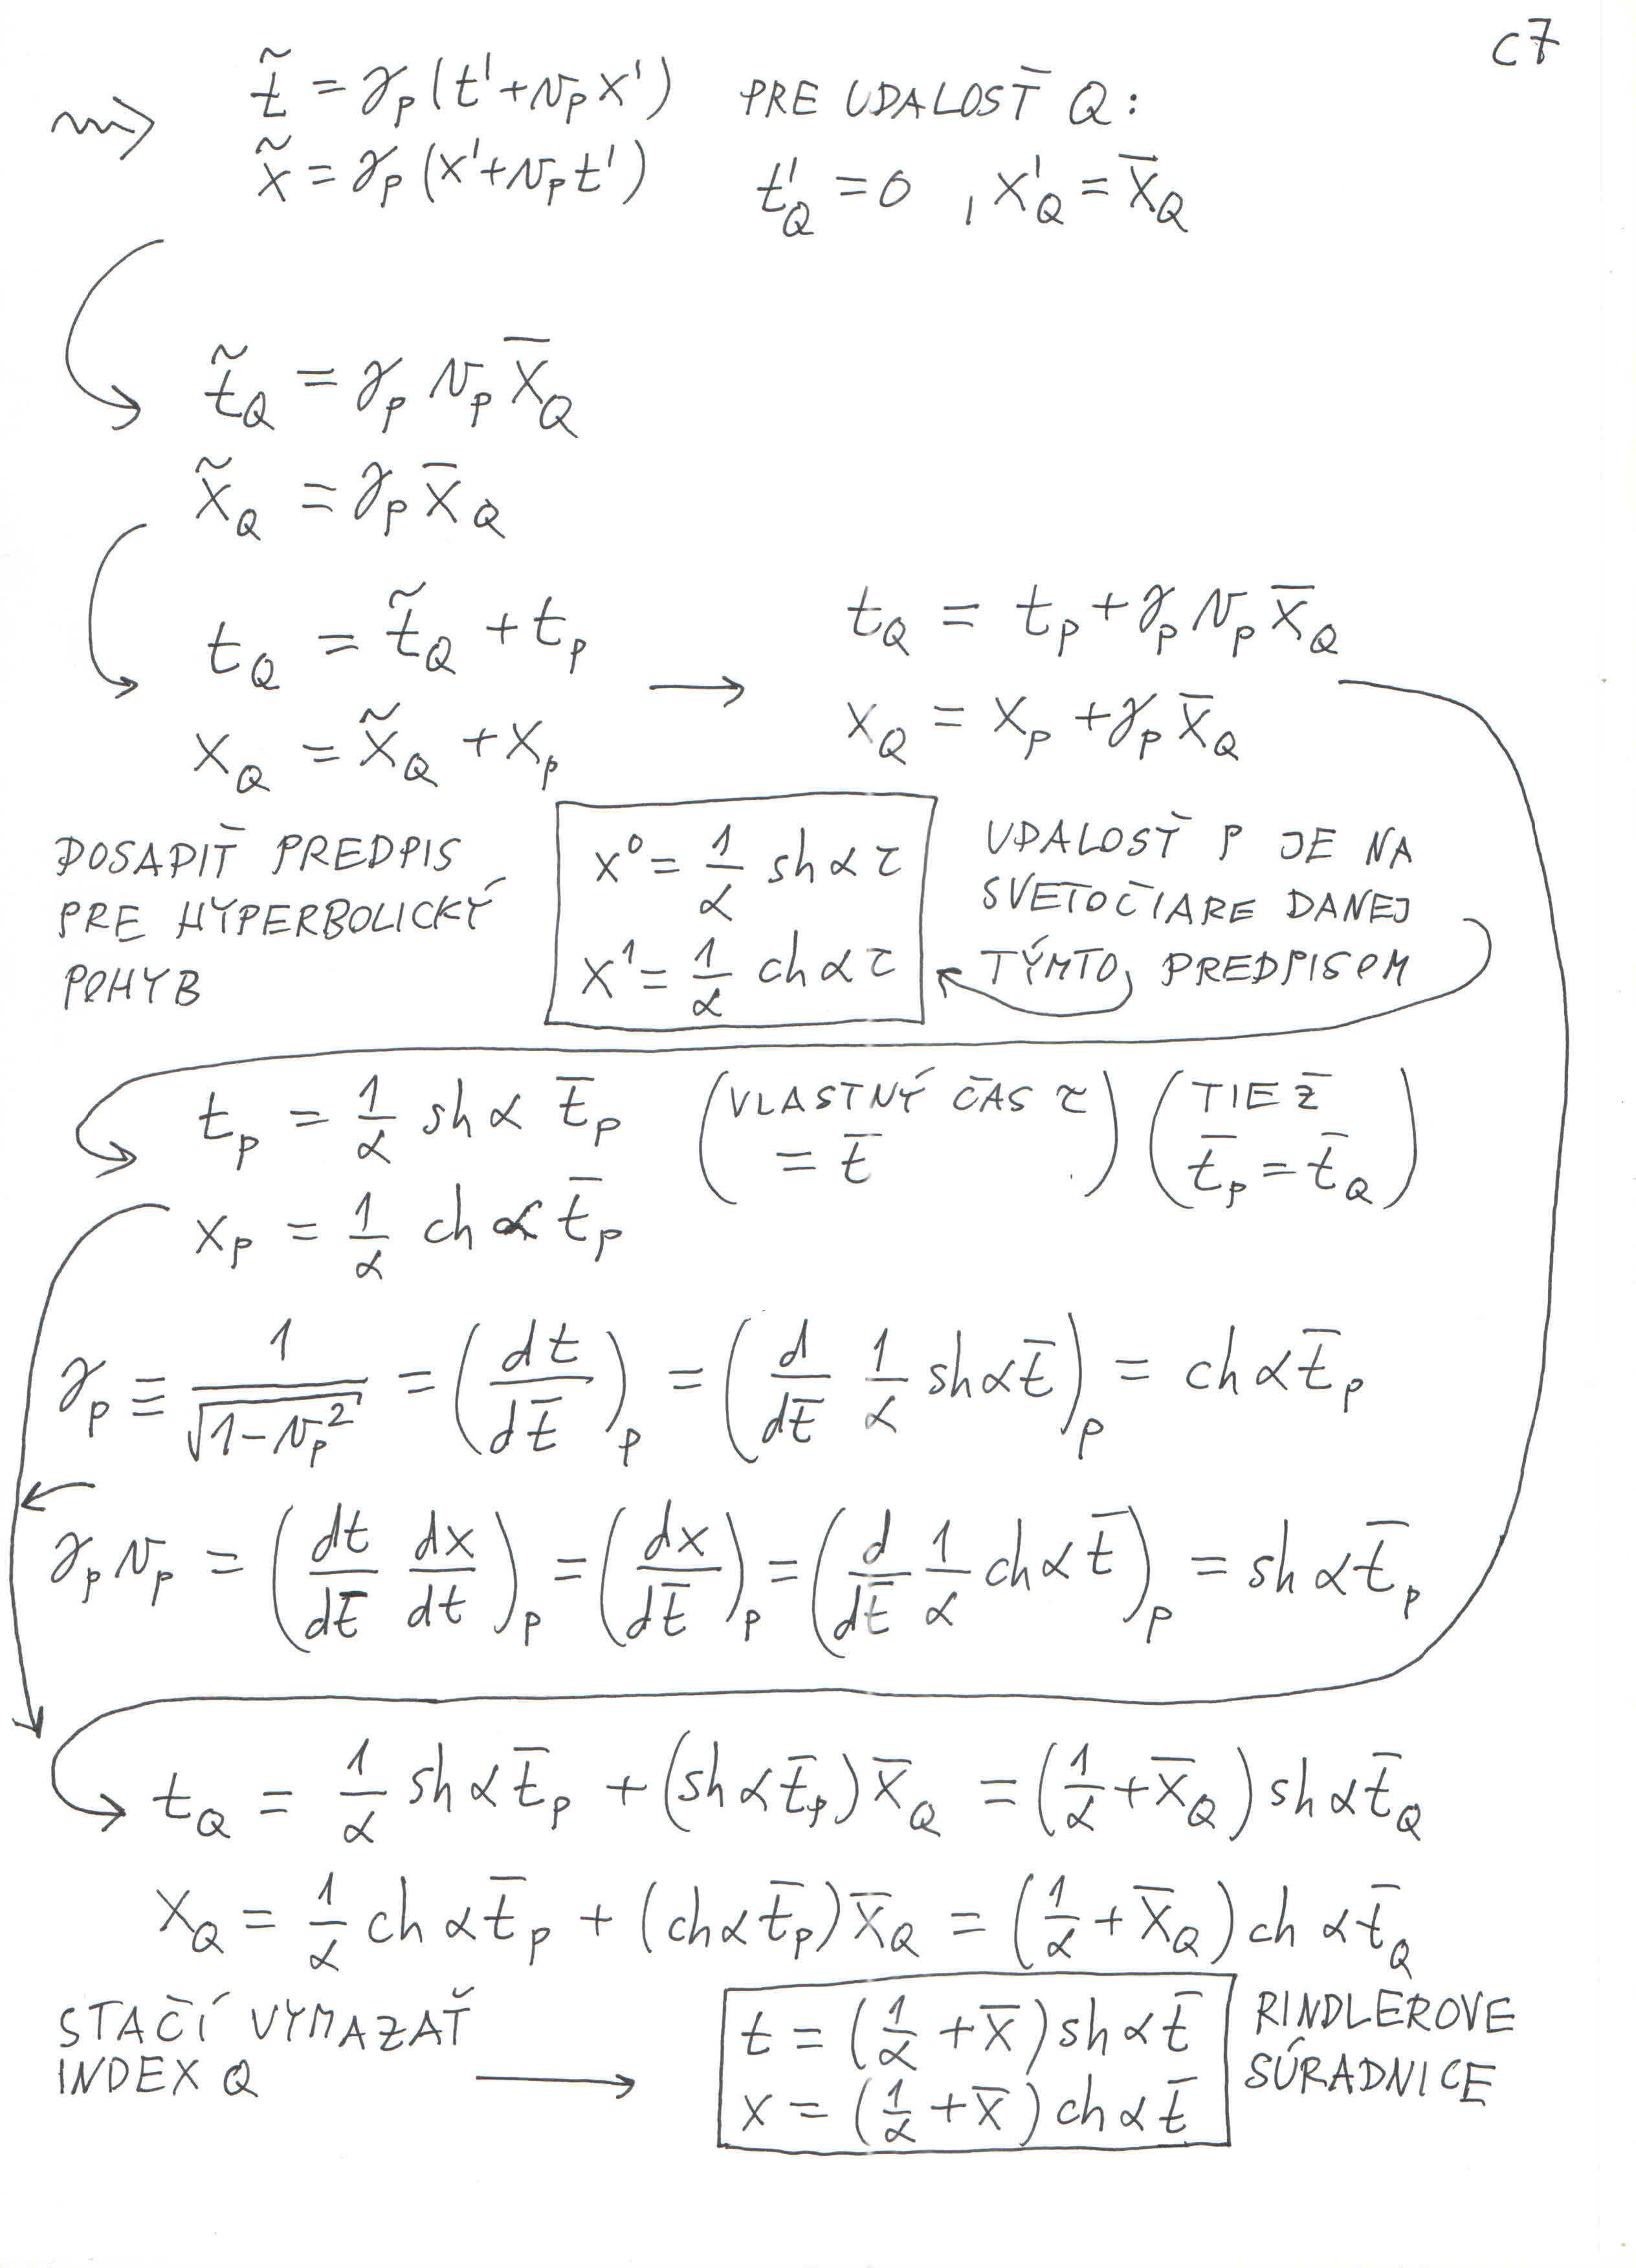 C7
t̃ = γ_P (t' + v_P x') PRE UDALOSŤ Q:
x̃ = γ_P (x' + v_P t') t'_Q = 0 , x'_Q = x̄_Q
t̃_Q = γ_P v_P x̄_Q
x̃_Q = γ_P x̄_Q
t_Q = t̃_Q + t_P → t_Q = t_P + γ_P v_P x̄_Q
x_Q = x̃_Q + x_P x_Q = x_P + γ_P x̄_Q
DOSADIŤ PREDPIS
PRE HYPERBOLICKÝ
POHYB
x⁰ = 1/α sh α τ
x¹ = 1/α ch α τ
UDALOSŤ P JE NA
SVETOČIARE DANEJ
TÝMTO PREDPISOM
t_P = 1/α sh α t̄_P (VLASTNÝ ČAS τ = t̄) (TIEŽ t̄_P = t̄_Q)
x_P = 1/α ch α t̄_P
γ_P ≡ 1/√(1-v_P²) = (dt/dt̄)_P = (d/dt̄ 1/α sh α t̄)_P = ch α t̄_P
γ_P v_P = (dt/dt̄ dx/dt)_P = (dx/dt̄)_P = (d/dt̄ 1/α ch α t̄)_P = sh α t̄_P
t_Q = 1/α sh α t̄_P + (sh α t̄_P) x̄_Q = (1/α + x̄_Q) sh α t̄_Q
x_Q = 1/α ch α t̄_P + (ch α t̄_P) x̄_Q = (1/α + x̄_Q) ch α t̄_Q
STAČÍ VYMAZAŤ
INDEX Q →
t = (1/α + x̄) sh α t̄
x = (1/α + x̄) ch α t̄
RINDLEROVE
SÚRADNICE